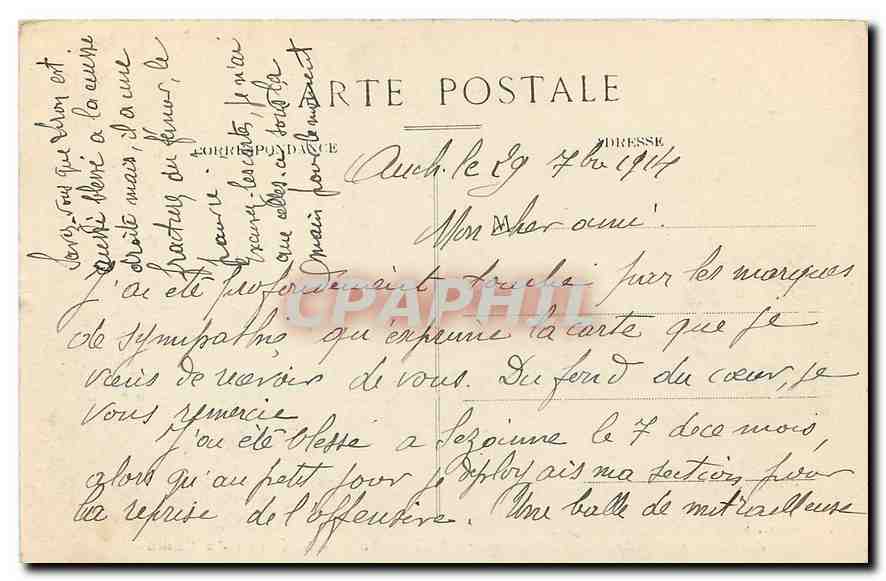 CARTE POSTALE
CORRESPONDANCE
ADRESSE
Auch. le 29 7bre 1914
Mon cher ami!
j'ai été profondement touché par les marques
de sympathie qu'exprime la carte que je
viens de recevoir de vous. Du fond du cœur, je
vous remercie
J'ai été blessé a Sezanne le 7 de ce mois,
alors qu'au petit jour je deployais ma section pour
la reprise de l'offensive. Une balle de mitrailleuse
Savez-vous que est
aussi blessé a la cuisse
droite mais, il a une
fracture du fémur, le
pauvre.
Excusez les cartes, je n'ai
que elles-a sous la
main pour le moment
CPAPHIL